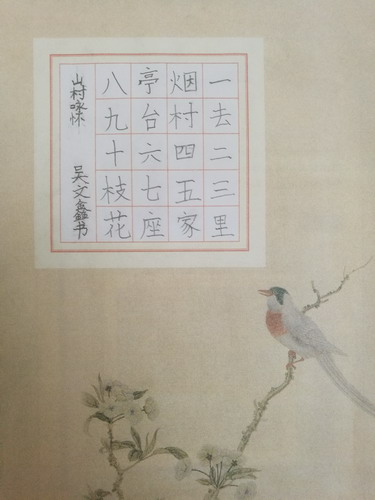 一去二三里
烟村四五家
亭台六七座
八九十枝花
山村咏怀 吴文鑫书